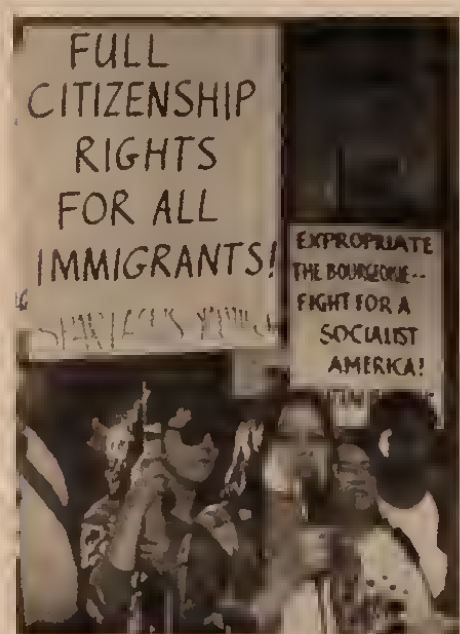 FULL
CITIZENSHIP
RIGHTS
FOR ALL
IMMIGRANTS!
SPARTACUS YOUTH
EXPROPRIATE
THE BOURGEOISIE--
FIGHT FOR A
SOCIALIST
AMERICA!